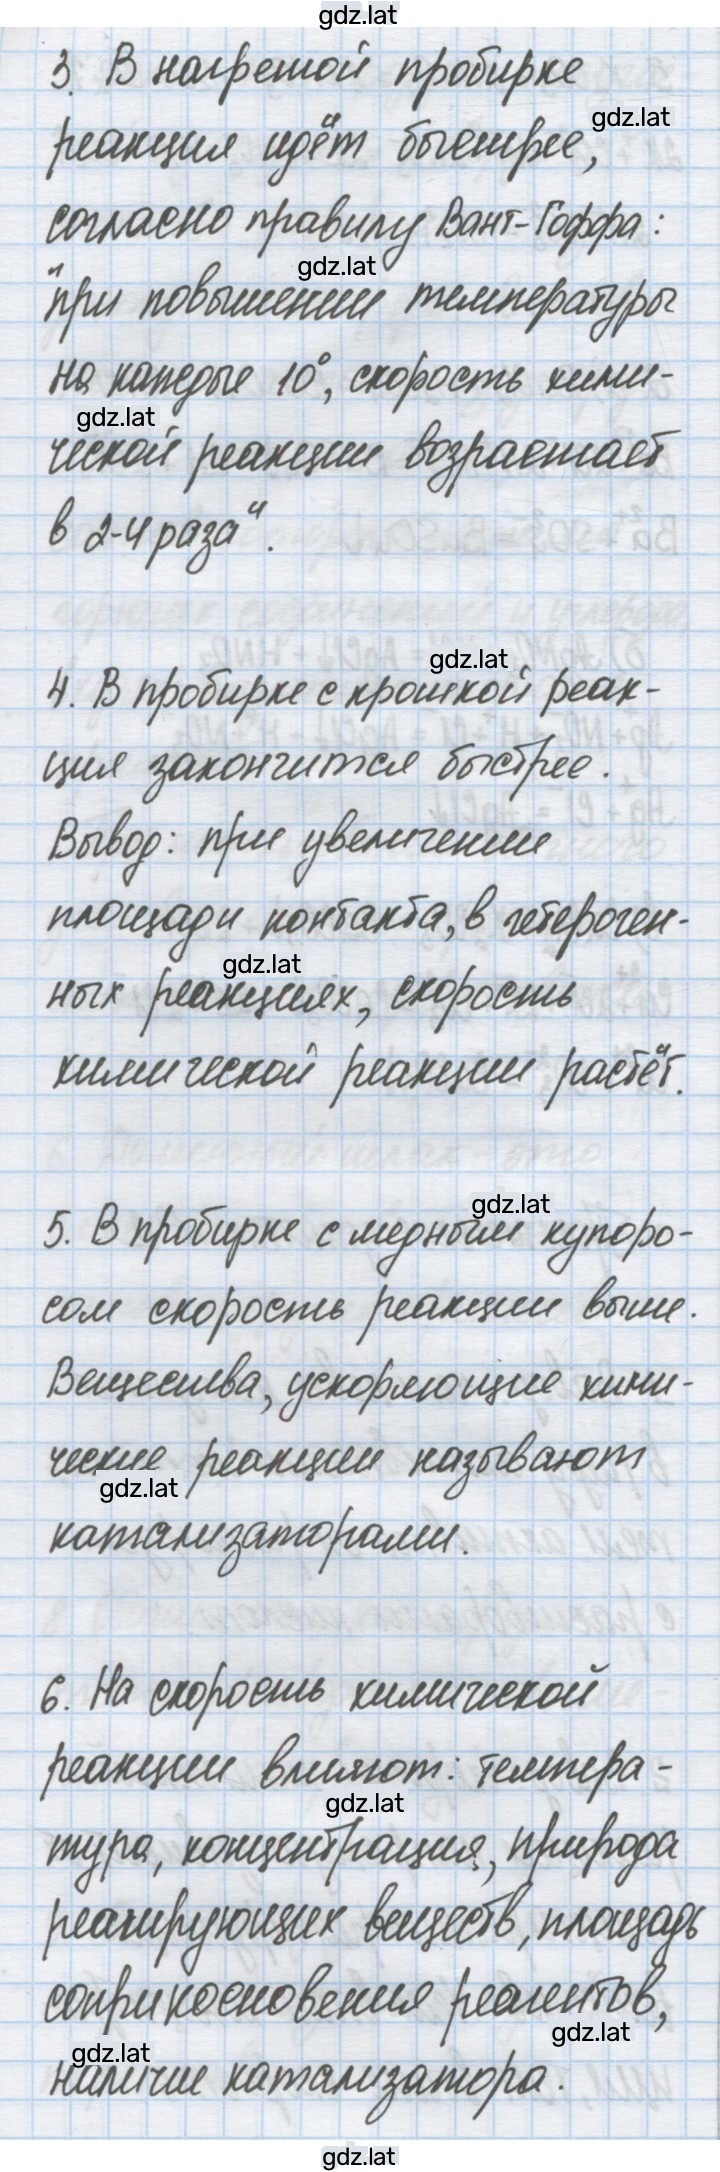 gdz.lat
3. В нагретой пробирке
gdz.lat
реакция идёт быстрее,
согласно правилу Вант-Гоффа:
gdz.lat
"при повышении температуры
на каждые 10°, скорость хими-
gdz.lat
ческой реакции возрастает
в 2-4 раза".
gdz.lat
4. В пробирке с крошкой реак-
ция закончится быстрее.
Вывод: при увеличении
площади контакта, в гетероген-
gdz.lat
ных реакциях, скорость
химической реакции растёт.
gdz.lat
5. В пробирке с медным купоро-
сом скорость реакции выше.
Вещества, ускоряющие хими-
ческие реакции называют
gdz.lat
катализаторами.
6. На скорость химической
реакции влияют: темпера-
gdz.lat
тура, концентрация, природа
реагирующих веществ, площадь
соприкосновения реагентов,
gdz.lat
gdz.lat
наличие катализатора.
gdz.lat